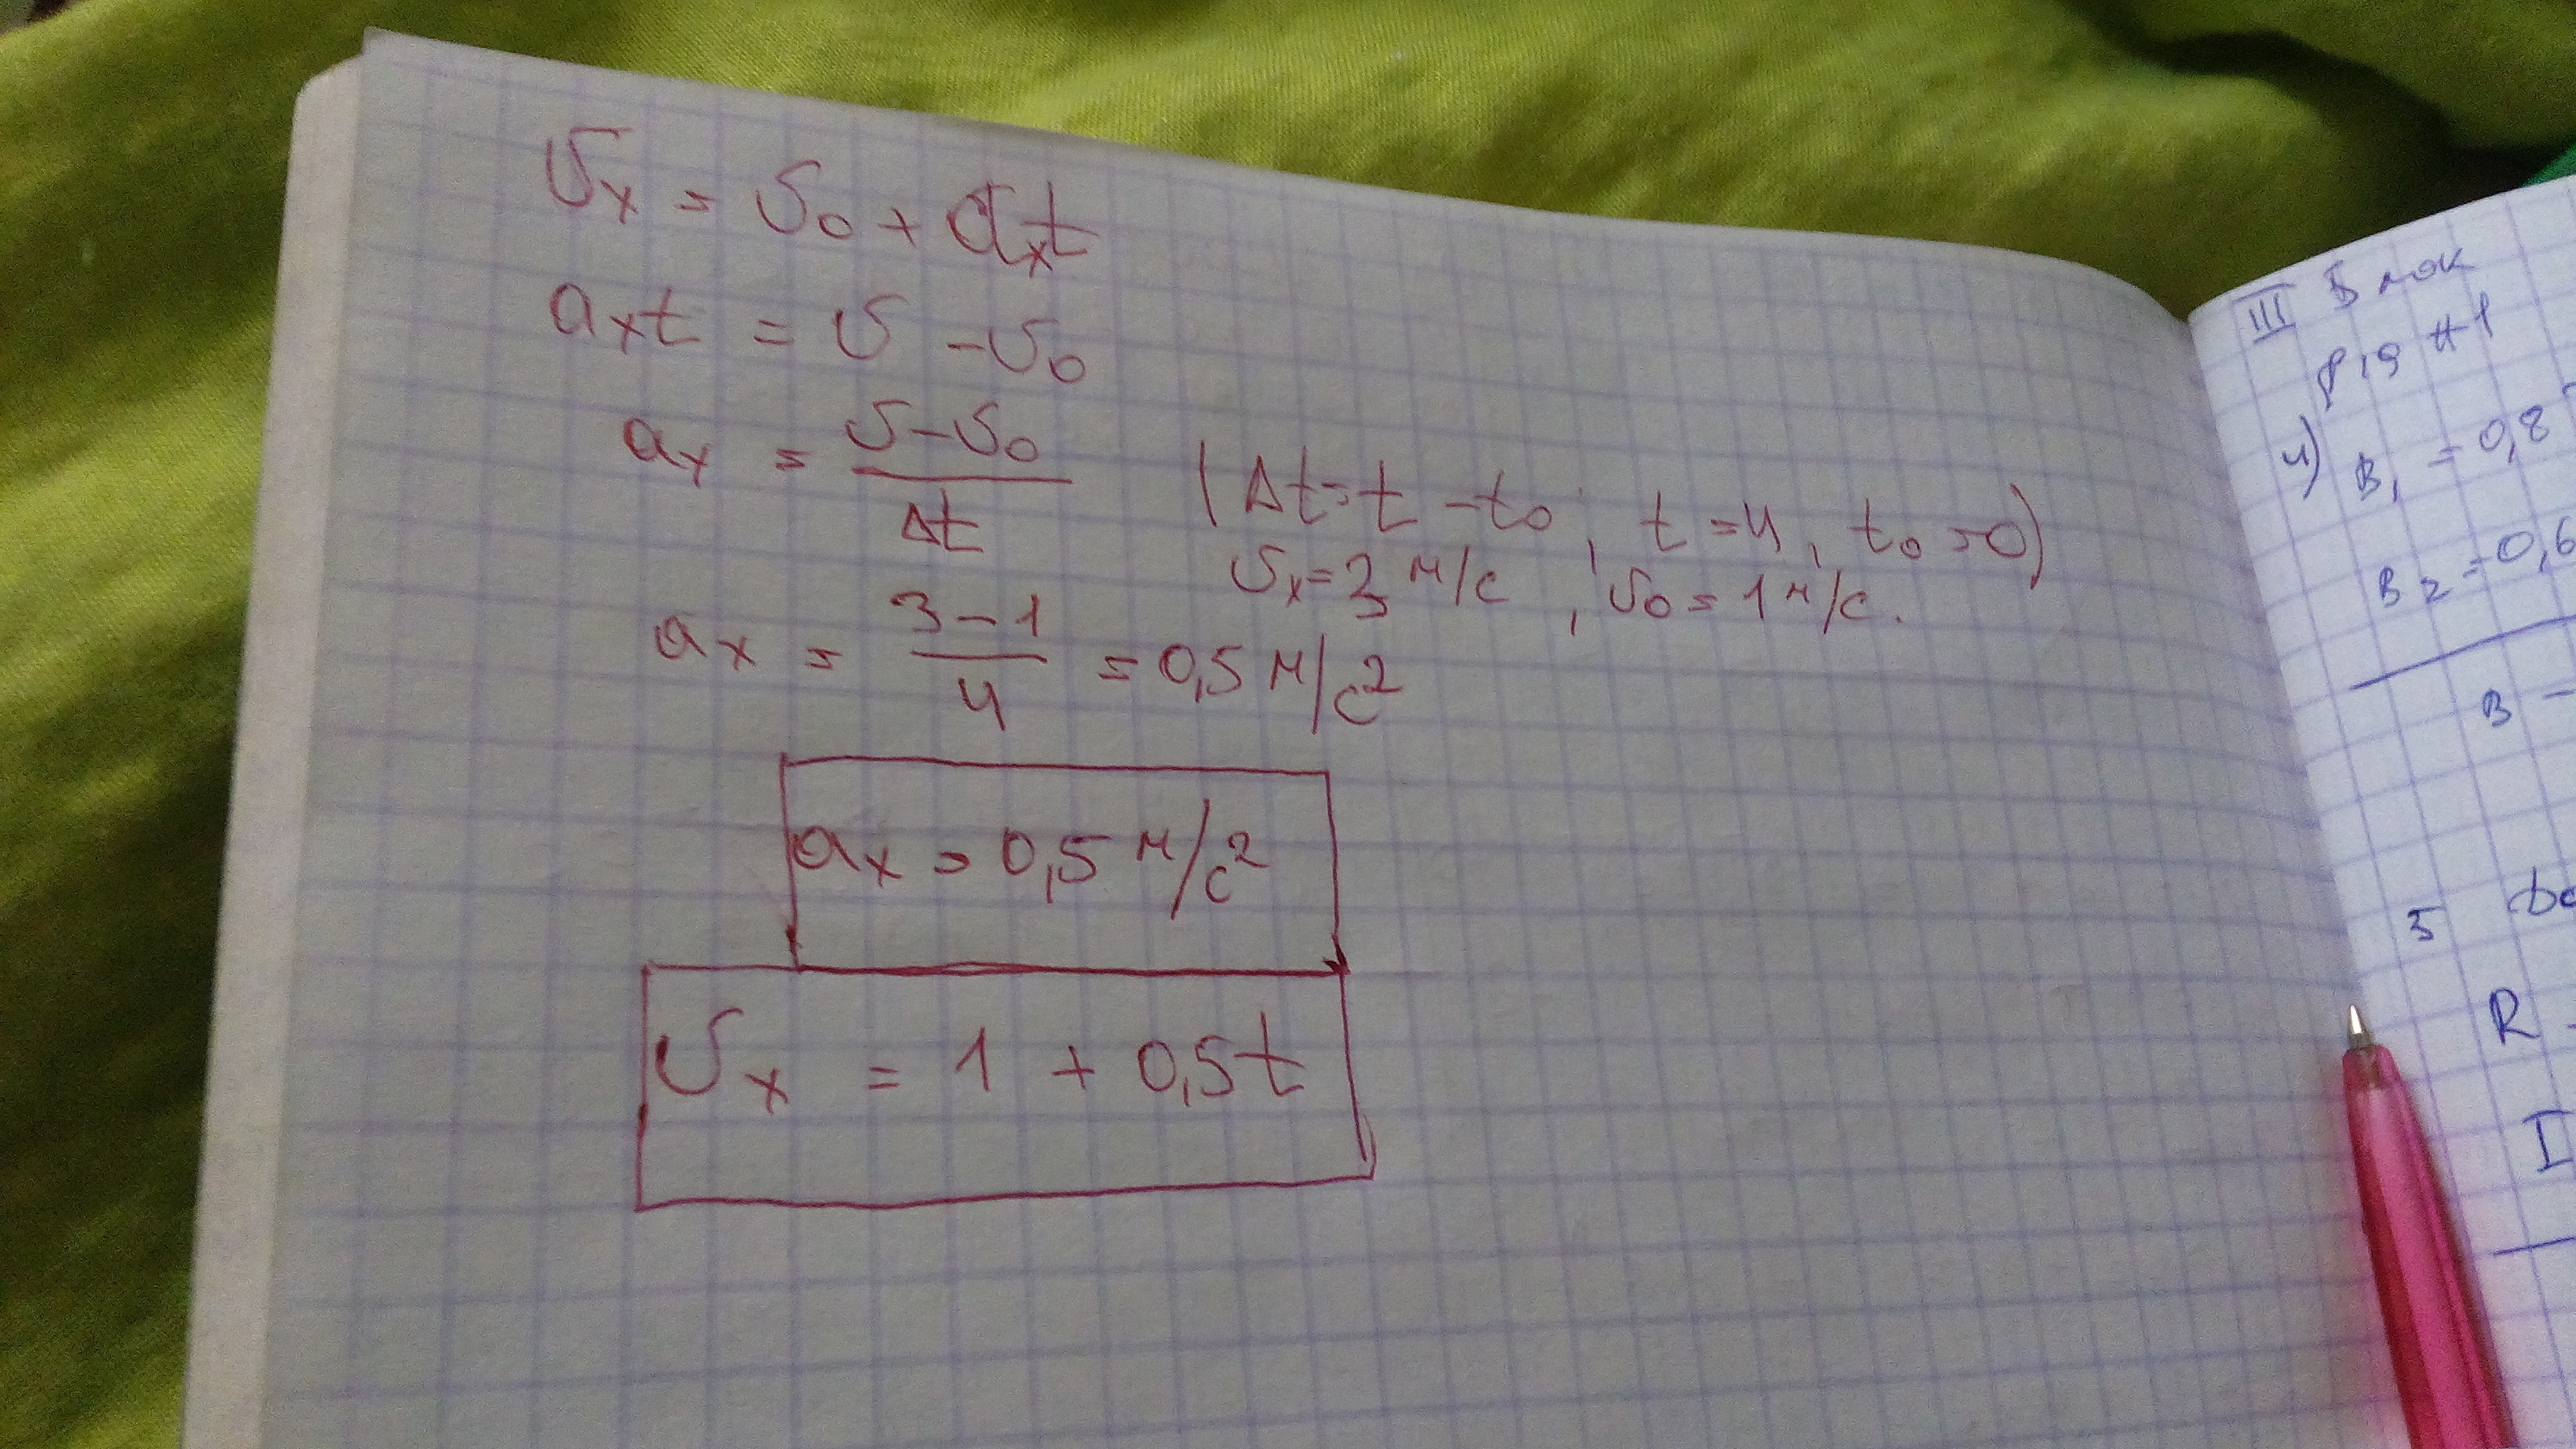 υₓ = υ₀ + aₓt
aₓt = υ - υ₀
aₓ = (υ - υ₀)/Δt (Δt = t - t₀; t = 4, t₀ = 0)
υₓ = 3 м/с, υ₀ = 1 м/с.
aₓ = (3 - 1)/4 = 0,5 м/с²
aₓ = 0,5 м/с²
υₓ = 1 + 0,5t
III Блок
#1
4) B₁ = 0,8
B₂ = 0,6
B -
5
R
I